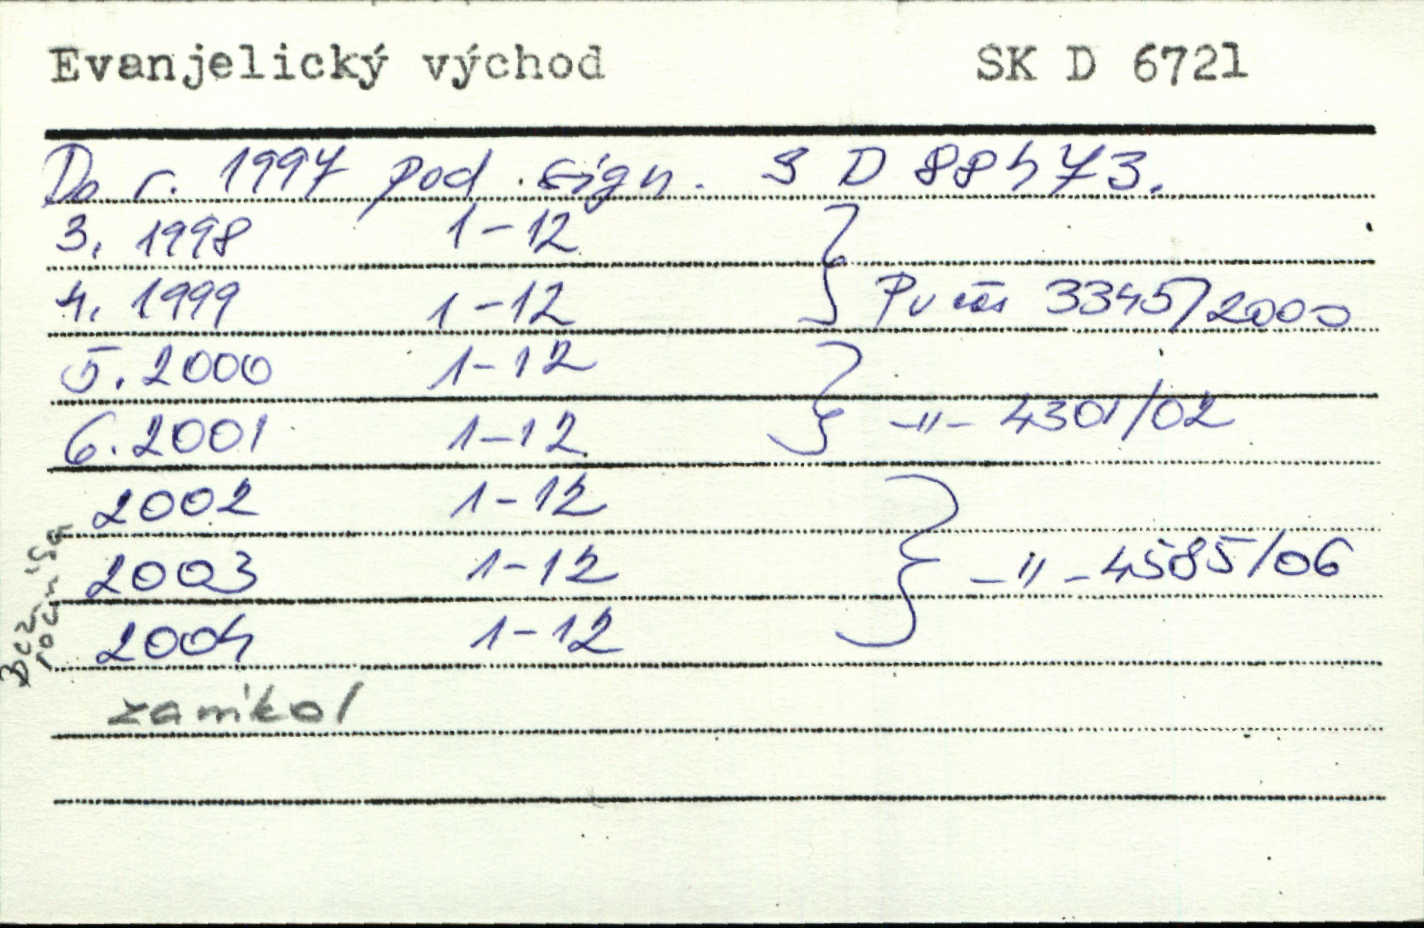 Evanjelický východ SK D 6721
Do r. 1997 pod sign. S D 88473.
3. 1998 1-12
4. 1999 1-12 Pv čís 3345/2000
5. 2000 1-12
6. 2001 1-12 -"- 4301/02
2002 1-12
2003 1-12 -"- 4585/06
2004 1-12
Bez čísla
ročníka
zanikol